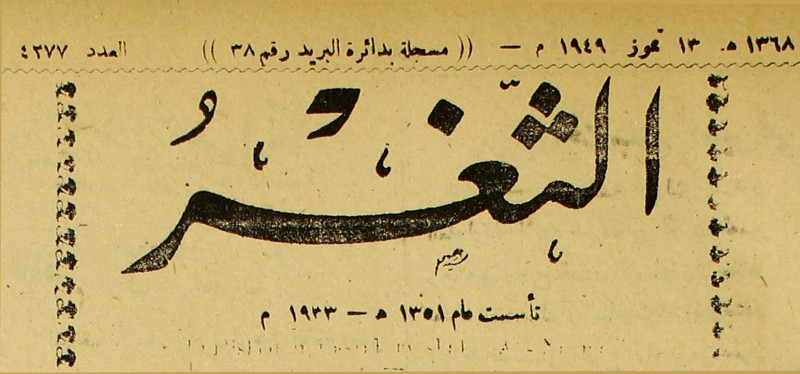 ١٣٦٨ ه. ١٣ تموز ١٩٤٩ م — (( مسجلة بدائرة البريد رقم ٣٨ )) العدد ٤٢٧٧
الثَّغْرُ
تأسست عام ١٣٥١ ه — ١٩٣٣ م